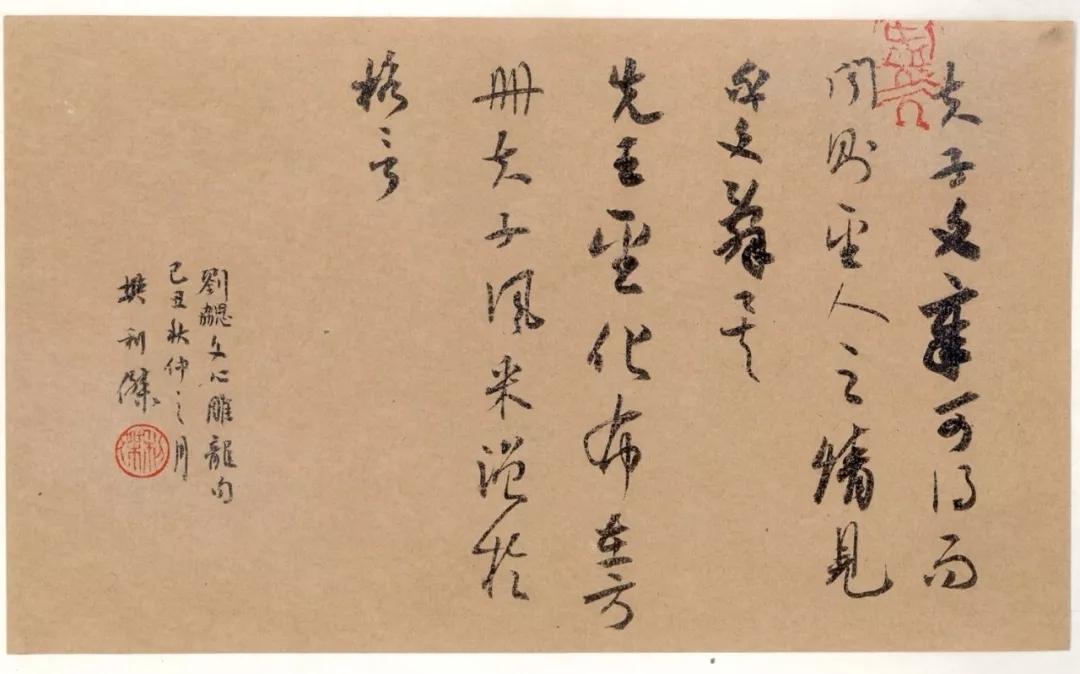 夫子文章可得而
聞則聖人之情見
乎文辭矣
先王聖化布在方
冊夫子風采溢於
格言
劉勰文心雕龍句
己丑秋仲之月
樊利傑
利傑